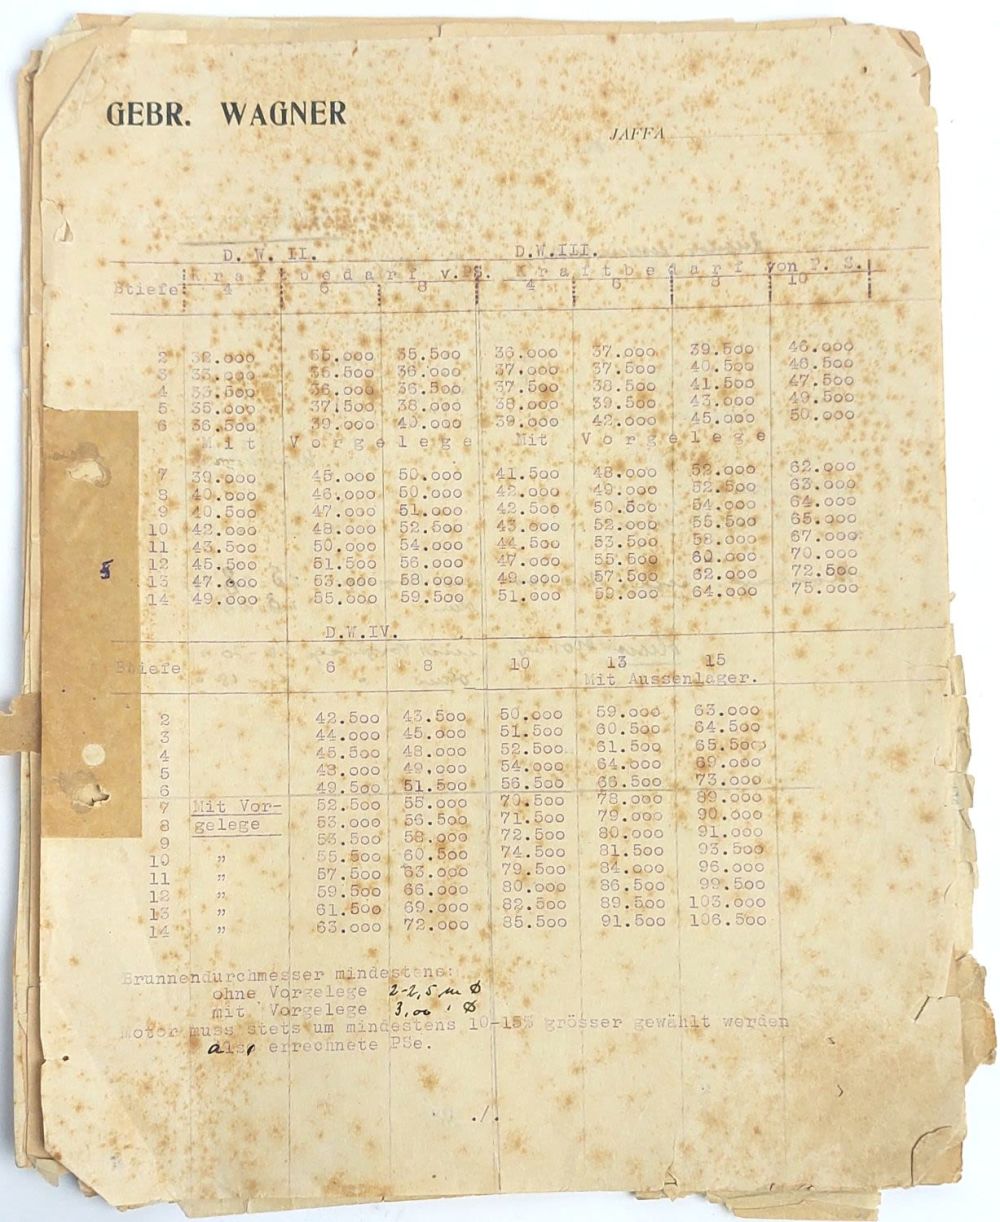 GEBR. WAGNER
JAFFA
D. W. II. D.W.III.
Kraftbedarf v.PS. Kraftbedarf von P. S.
Btiefe 4 6 8 4 6 8 10
2 32.000 35.000 35.500 36.000 37.000 39.500 46.000
3 33.000 35.500 36.000 37.000 37.500 40.500 46.500
4 33.500 36.000 36.500 37.500 38.500 41.500 47.500
5 35.000 37.500 38.000 38.000 39.500 43.000 49.500
6 36.500 39.000 40.000 39.000 42.000 45.000 50.000
Mit Vorgelege Mit Vorgelege
7 39.000 45.000 50.000 41.500 48.000 52.000 62.000
8 40.000 46.000 50.000 42.000 49.000 52.500 63.000
9 40.500 47.000 51.000 42.500 50.500 54.000 64.000
10 42.000 48.000 52.500 43.000 52.000 55.500 65.000
11 43.500 50.000 54.000 44.500 53.500 58.000 67.000
12 45.500 51.500 56.000 47.000 55.500 60.000 70.000
13 47.000 53.000 58.000 49.000 57.500 62.000 72.500
14 49.000 55.000 59.500 51.000 59.000 64.000 75.000
D.W.IV.
Btiefe 6 8 10 13 15
Mit Aussenlager.
2 42.500 43.500 50.000 59.000 63.000
3 44.000 45.000 51.500 60.500 64.500
4 45.500 48.000 52.500 61.500 65.500
5 48.000 49.000 54.000 64.000 69.000
6 49.500 51.500 56.500 66.500 73.000
7 Mit Vor- 52.500 55.000 70.500 78.000 89.000
8 gelege 53.000 56.500 71.500 79.000 90.000
9 53.500 58.000 72.500 80.000 91.000
10 " 55.500 60.500 74.500 81.500 93.500
11 " 57.500 63.000 79.500 84.000 96.000
12 " 59.500 66.000 80.000 86.500 99.500
13 " 61.500 69.000 82.500 89.500 103.000
14 " 63.000 72.000 85.500 91.500 106.500
Brunnendurchmesser mindestens:
ohne Vorgelege 2-2,5 m Ø
mit Vorgelege 3,00 " Ø
Motor muss stets um mindestens 10-15% grösser gewählt werden
als errechnete PSe.
./.